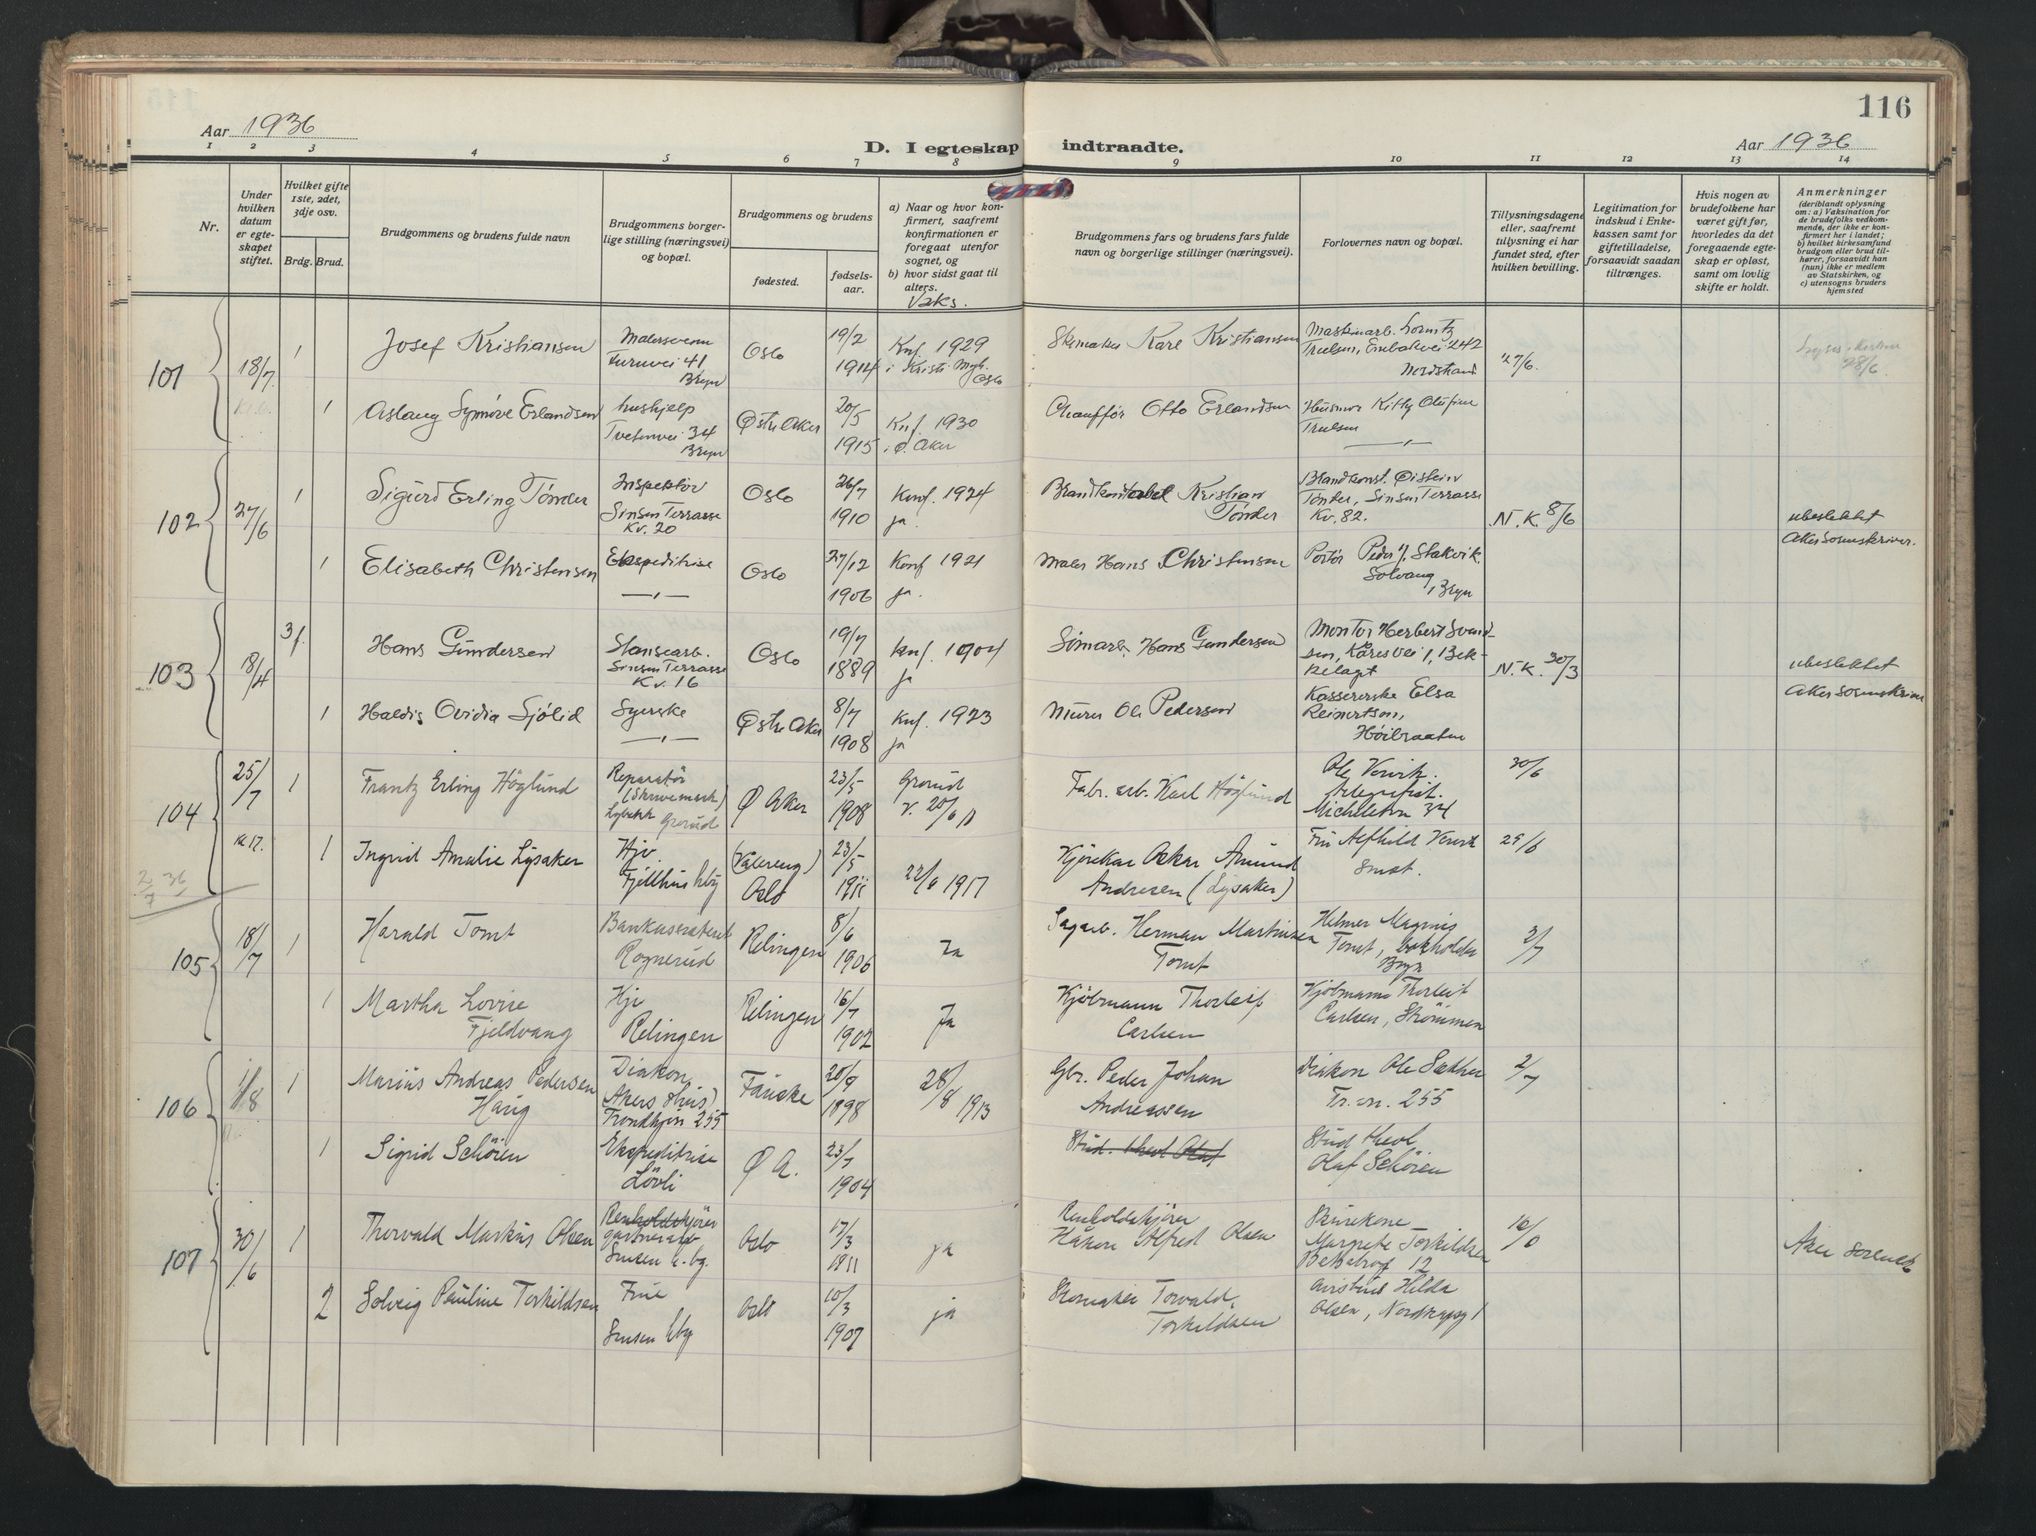 116
Aar 1936
D. I egteskap indtraadte.
Aar 1936
1 2 3 4 5 6 7 8 9 10 11 12 13 14
Nr.
Under
hvilken
datum
er egte-
skapet
stiftet.
Hvilket gifte
1ste, 2det,
3dje osv.
Brdg. Brud.
Brudgommens og brudens fulde navn
Brudgommens borger-
lige stilling (næringsvei)
og bopæl.
Brudgommens og brudens
fødested.
fødsels-
aar.
a) Naar og hvor kon-
firmert, saafremt
konfirmationen er
foregaat utenfor
sognet, og
b) hvor sidst gaat til
alters.
Vaks.
Brudgommens fars og brudens fars fulde
navn og borgerlige stillinger (næringsvei).
Forlovernes navn og bopæl.
Tillysningsdagene
eller, saafremt
tillysning ei har
fundet sted, efter
hvilken bevilling.
Legitimation for
indskud i Enke-
kassen samt for
giftetilladelse,
forsaavidt saadan
tiltrænges.
Hvis nogen av
brudefolkene har
været gift før,
hvorledes da det
foregaaende egte-
skap er opløst,
samt om lovlig
skifte er holdt.
Anmerkninger
(deriblandt oplysning
om: a) Vaksination for
de brudefolks vedkom-
mende, der ikke er kon-
firmert her i landet;
b) hvilket kirkesamfund
brudgom eller brud til-
hører, forsaavidt han
(hun) ikke er medlem
av Statskirken, og
c) utensogns bruders
hjemsted
101 18/7 1 Josef Kristiansen
Malersvenn
Furuvei 41
Bryn
Oslo 19/2 1914
Knf. 1929
Oslo
Skomaker Karl Kristiansen
Truelsen, Enebakvei 242
Nordstrand
27/6
28/6
1 Aslaug Synnøve Erlandsen
Hushjelp
Tvetenvei 34
Bryn
Østre Aker 20/5 1915
Knf. 1930
i Ø. Aker
Chauffør Otto Erlandsen
Husmor Kitty Olufine
Truelsen
102 27/6 1 Sigurd Erling Tønder
Inspektør
Sinsen Terrasse
Kv. 20
Oslo 26/7 1910
Konf. 1924
ja.
Brandkonstabel Kristian
Tønder
Brandkonst. Øistein
Tønder, Sinsen Terrasse
Kv. 82.
N.K. 8/6
ubeslektet
Aker Sorenskriver.
1 Elisabeth Christensen
Ekspeditrise
—„—
Oslo 27/12 1906
Konf 1921
ja.
Maler Hans Christensen
Portør Peder J. Stakvik
Solvang,
Bryn
103 18/4 3f. Hans Gundersen
Stansearb.
Sinsen Terrasse
Kv. 16
Oslo 19/7 1889
Knf. 1904
ja
Hans Gundersen
Montør Herbert Svend-
sen, Kåresvei 1, Bek-
kelaget
N.K. 30/3
ubeslektet
Aker Sorenskriver
1 Haldis Ovidia Sjølid
Syerske
—„—
Østre Aker 8/7 1908
Knf. 1923
ja
Murer Ole Pedersen
Kassererske Elsa
Reinertson,
Høibraaten
104 25/7 1 Frantz Erling Höglund
Reparatør
(Skrivemask.)
Grorud
Ø Aker 23/5 1908
Grorud
Fabr. arb. Karl Höglund
Ole Vervik.
telegrafist.
30/6
kl 17. 1 Ingrid Amalie Lysaker
Hjv.
Fjellhus
(Vålereng)
Oslo 23/5 1911
Kjörekar Oskar Amund
Andresen (Lysaker)
Fru Alfhild Vervik
29/6
2/7 36
105 18/7 1 Harald Tomt
Rognerud
Relingen 8/6 1906
Ja
Sagarb. Herman Martinsen
Tomt
Helmer Magnus
Tomt, bokholder
Bryn
2/7
1 Martha Lovise
Fjeldvang
Hjv
Relingen
Relingen 16/7 1902
Ja
Kjöbmann Thorleif
Carlsen
Kjöbmann Thorleif
Carlsen, Strömmen
106 1/8 1 Marius Andreas Pedersen
Haug
Diakon
(Akers shus)
Trondhjvn 255
Fauske 20/9 1898
28/8 1913
Gbr. Peder Johan
Andreassen
Diakon Ole Sæther
Tr. vn. 255
2/7
1 Sigrid Schöien
Ekspeditrise
Lövli
Ø A. 23/7 1904
Stud. theol Olaf
Stud theol
Olaf Schöien
107 30/6 1 Thorvald Markus Olsen
Renholdskjører
Sinsen h.bg.
Oslo 17/3 1911
ja
Renholdskjører
Håkon Alfred Olsen
Skurekone
Margrete Torkildsen
16/6
Aker sorensk
2 Solveig Pauline Torkildsen
Frue
Sinsen hbg
Oslo 10/3 1907
ja
Skomaker Torvald
Torkildsen
Hilda
Olsen,